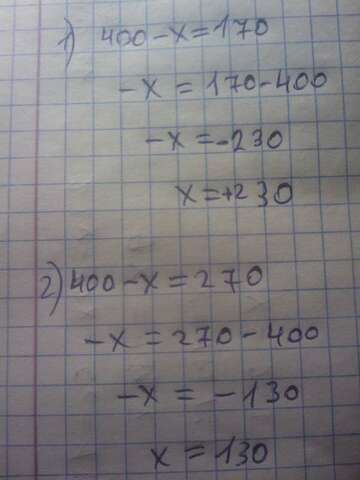 1) 400-x=170
-x = 170-400
-x=-230
x=+230
2) 400-x=270
-x = 270-400
-x = -130
x = 130